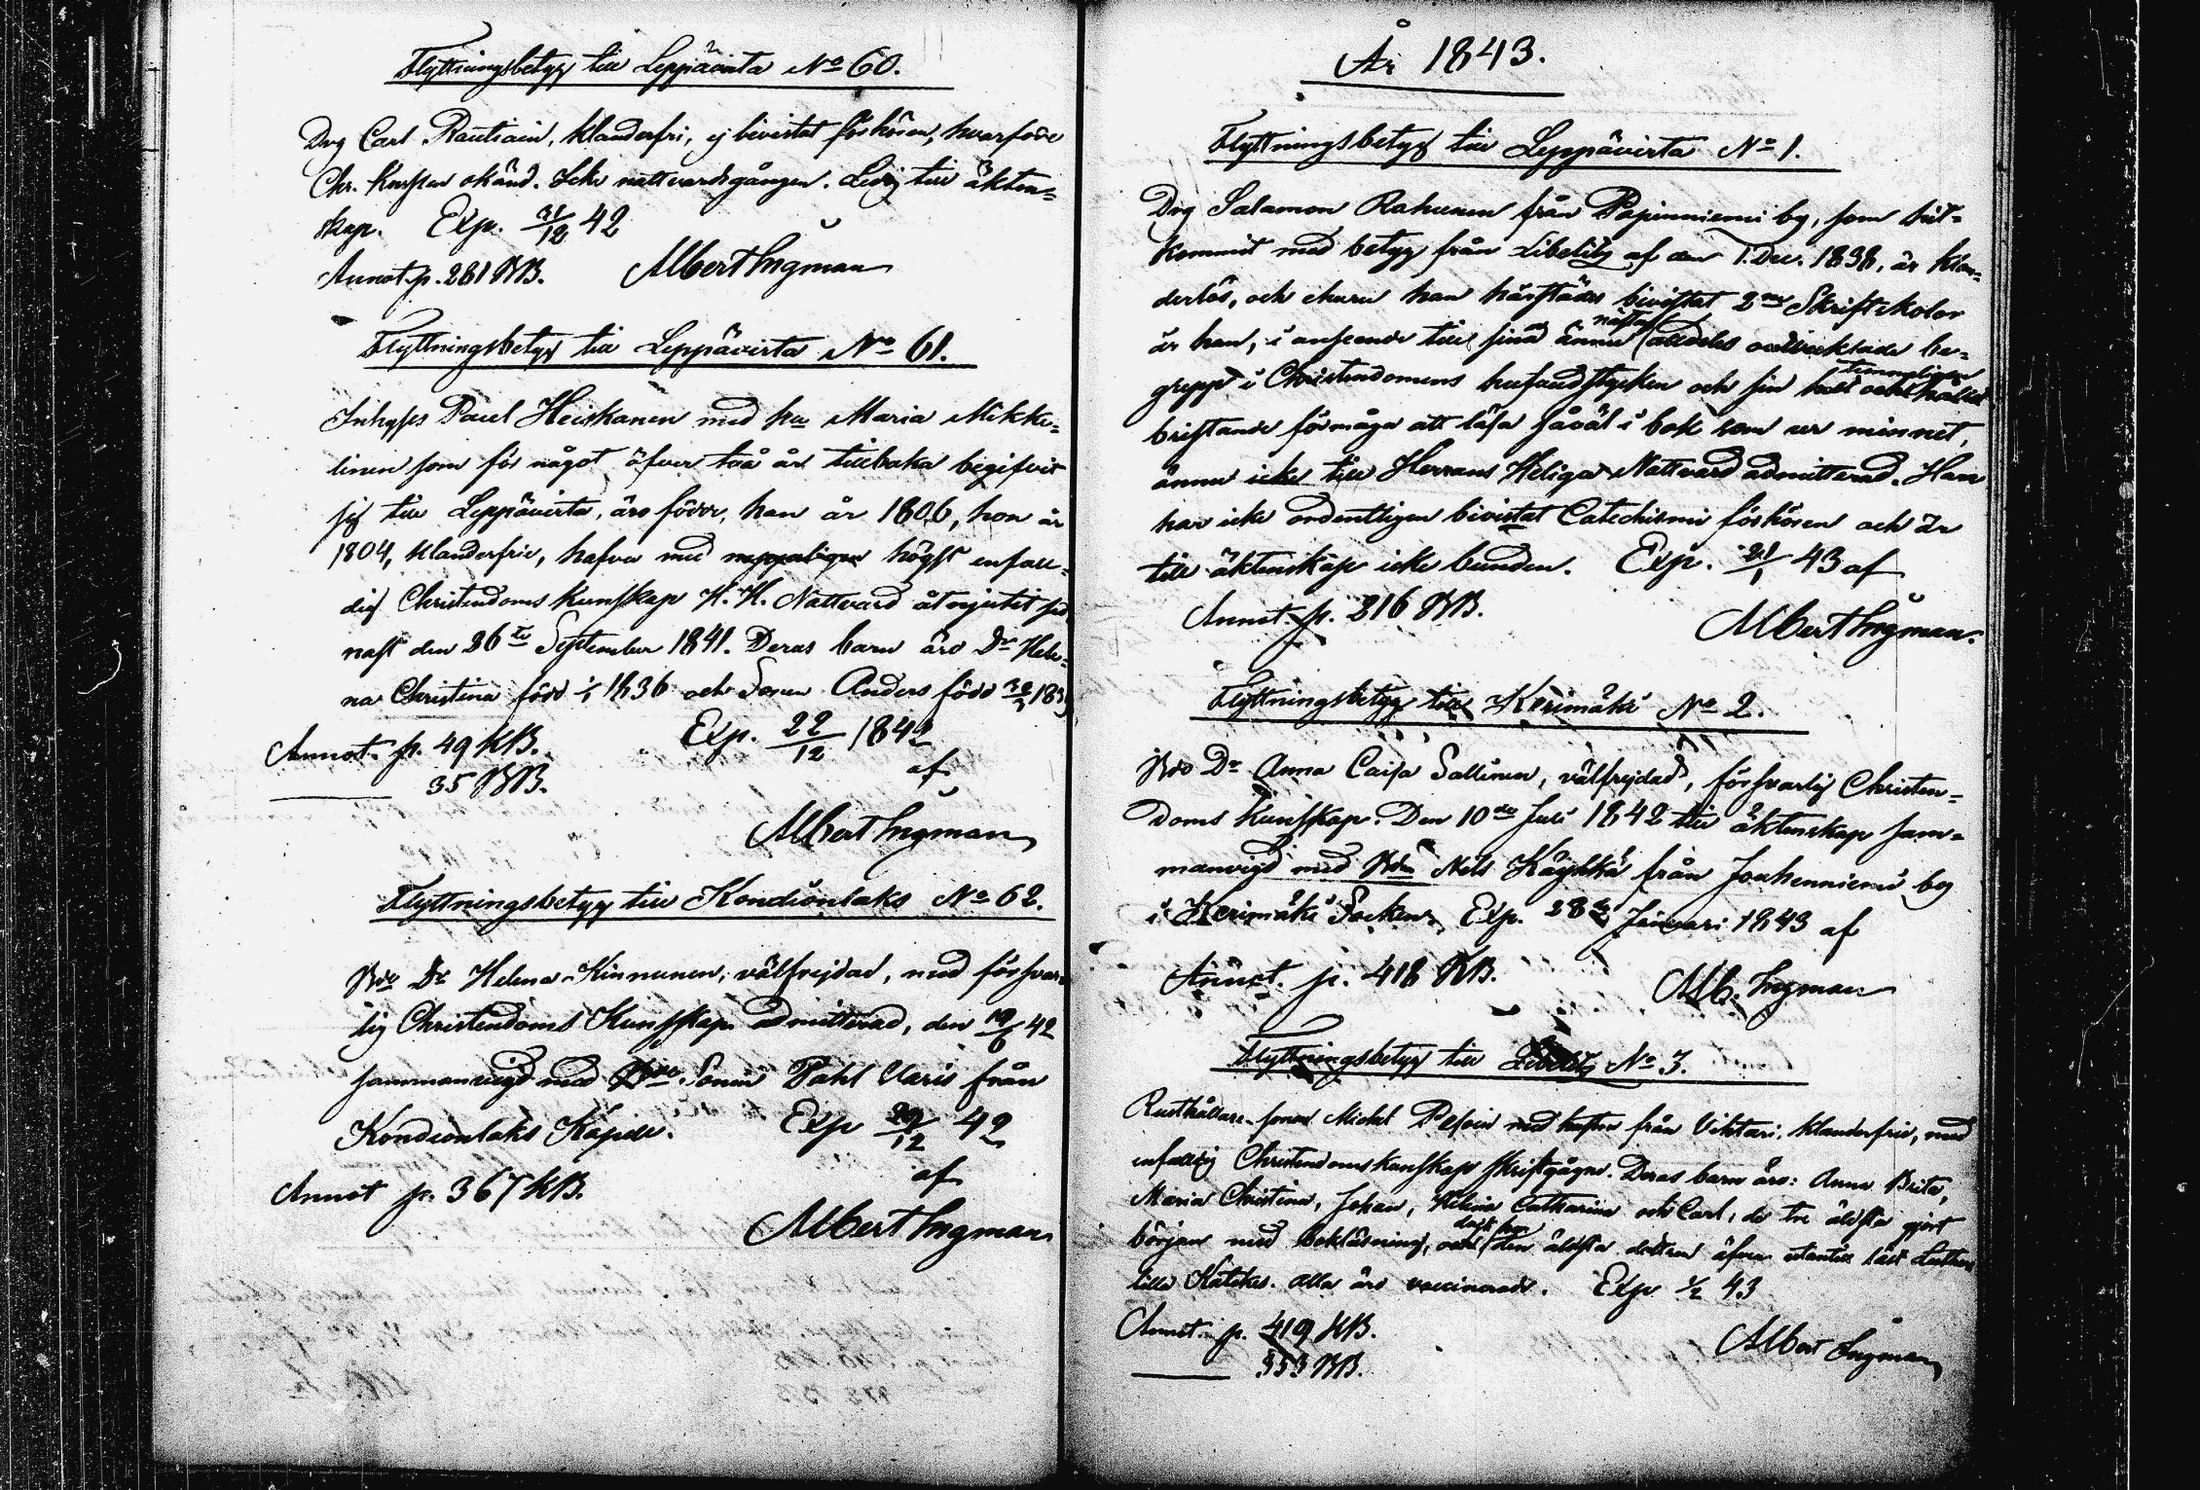 Flyttningsbetyg till Leppävirta No 60.
Drg Carl Rautiain, klanderfri, ej bivistat förhören, hvarföre
Chr. kunskap okänd. Icke nattvardsgången. Ledig till äkten=
skap. Exp. 31/12 42
Annot. p. 281 BB. Albert Ingman
Flyttningsbetyg till Leppävirta No 61.
Inhyses Paul Heiskanen med hu Maria Mikki=
linen som för något öfver två år tillbaka begifvit
sig till Leppävirta, äro födde, han år 1806, hon år
1804, klanderfrie, hafva med högst enfal=
dig Christendoms kunskap H. H. Nattvard åtnjutit sed
nast den 26te September 1841. Deras barn äro Dr Hele=
na Christina född 1836 och Sonen Anders född
Annot. p. 49 KB. Exp. 22/12 1842
35 BB. af
Albert Ingman
Flyttningsbetyg till Kondiolaks No 62.
Bdo Dr Helena Kinnunen, välfrejdad, med försvar
lig Christendoms Kunskap admitterad, den 19/6 42
sammanvigd med Sonen Pahl Varis från
Kondiolaks Kapell. Exp 29/12 42
af
Annot p. 367 KB.
Albert Ingman
År 1843.
Flyttningsbetyg till Leppävirta No 1.
Drg Salamon Rahunen från Papinniemi by, som hit=
kommit med betyg från Libelitz af den 1 Dec. 1838, är klan=
derlös, och ehuru han härstädes bivistat 2ne Skriftskolor
är han, i anseende till sina ännu nästan alldeles outvecklade be=
grepp i Christendomens hufvudstycken och sin
bristande förmåga att läsa såväl i bok som ur minnet,
ännu icke till Herrans Heliga Nattvard admitterad. Han
har icke ordentligen bivistat Catechismi förhören och är
till äktenskap icke bunden. Exp. 21/1 43 af
Annot. p. 216 BB.
Albert Ingman.
Flyttningsbetyg till Kerimäki No 2.
Bdo Dr Anna Caisa Sallinen, välfrejdad, försvarlig Christen=
doms Kunskap. Den 10de Juli 1842 till äktenskap sam=
manvigd med Bdn Nils Käyhkä från Jouhenniemi by
i Kerimäki Socken. Exp. 28de Januari 1843 af
Annot. p. 418 KB. Alb. Ingman
Flyttningsbetyg till Libelitz No 3.
Rusthållare sonen Michel med hustru från Viktari, klanderfrie, med
enfaldig Christendomskunskap skriftgågne. Deras barn äro: Anna Brita,
Maria Christina, Johan, Helena Catharina och Carl, de tre äldsta gjort
början med bokläsning, och den äldsta dottren äfven utantill läst Luthers
lilla Katekes. Alla äro vaccinerade. Exp 1/2 43
Annot. p. 419 KB.
353 BB. Albert Ingman